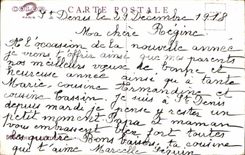 CARTE POSTALE
St Denis le 29 Décembre 1918
Ma chère Régine
A l'occasion de la nouvelle année
je viens t'offrir ainsi que mes parents
nos meilleurs vœux de bonne et
heureuse année ainsi qu'a tante
Marie, cousine Fernandine et
cousine Cassin. Je suis à St Denis
depuis mardi je pense y rester un
petit moment Papa et maman
vous embrassent bien fort toutes
les quatre Bons baisers, ta cousine
qui t'aime Marcelle